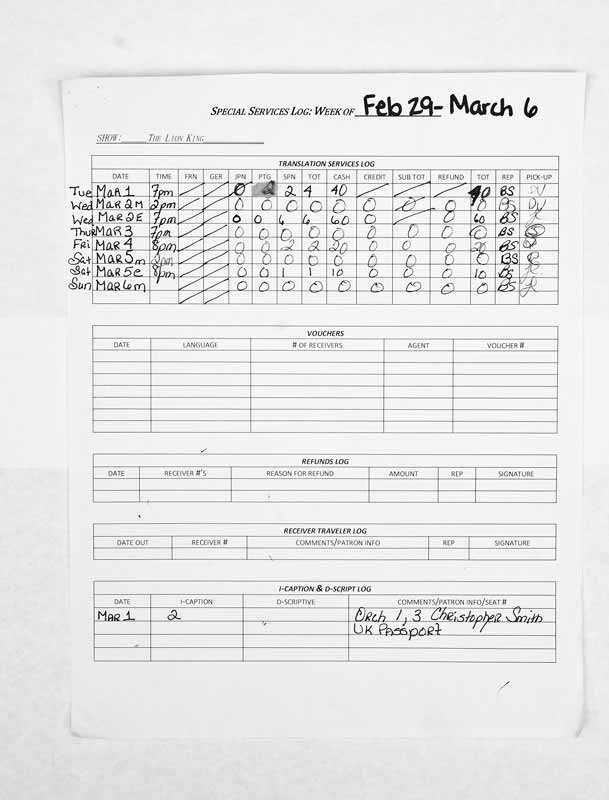 SPECIAL SERVICES LOG: WEEK OF Feb 29 - March 6
SHOW: THE LION KING
TRANSLATION SERVICES LOG
DATE TIME FRN GER JPN PTG SPN TOT CASH CREDIT SUB TOT REFUND TOT REP PICK-UP
Tue MAR 1 7pm 0 2 2 4 40 40 BS
Wed MAR 2 M 2pm 0 0 0 0 0 0 0 0 0 BS
Wed MAR 2 E 7pm 0 0 6 6 60 0 0 60 BS
Thur MAR 3 7pm 0 0 0 0 0 0 0 0 0 BS
Fri MAR 4 8pm 0 0 2 2 20 0 0 0 20 BS
Sat MAR 5 m 2pm 0 0 0 0 0 0 0 0 0 BS
Sat MAR 5 e 8pm 0 0 1 1 10 0 0 0 10 BS
Sun MAR 6 m 0 0 0 0 0 0 0 0 0 BS
VOUCHERS
DATE LANGUAGE # OF RECEIVERS AGENT VOUCHER #
REFUNDS LOG
DATE RECEIVER #'S REASON FOR REFUND AMOUNT REP SIGNATURE
RECEIVER TRAVELER LOG
DATE OUT RECEIVER # COMMENTS/PATRON INFO REP SIGNATURE
I-CAPTION & D-SCRIPT LOG
DATE I-CAPTION D-SCRIPTIVE COMMENTS/PATRON INFO/SEAT #
MAR 1 2 Orch 1, 3 Christopher Smith
UK Passport